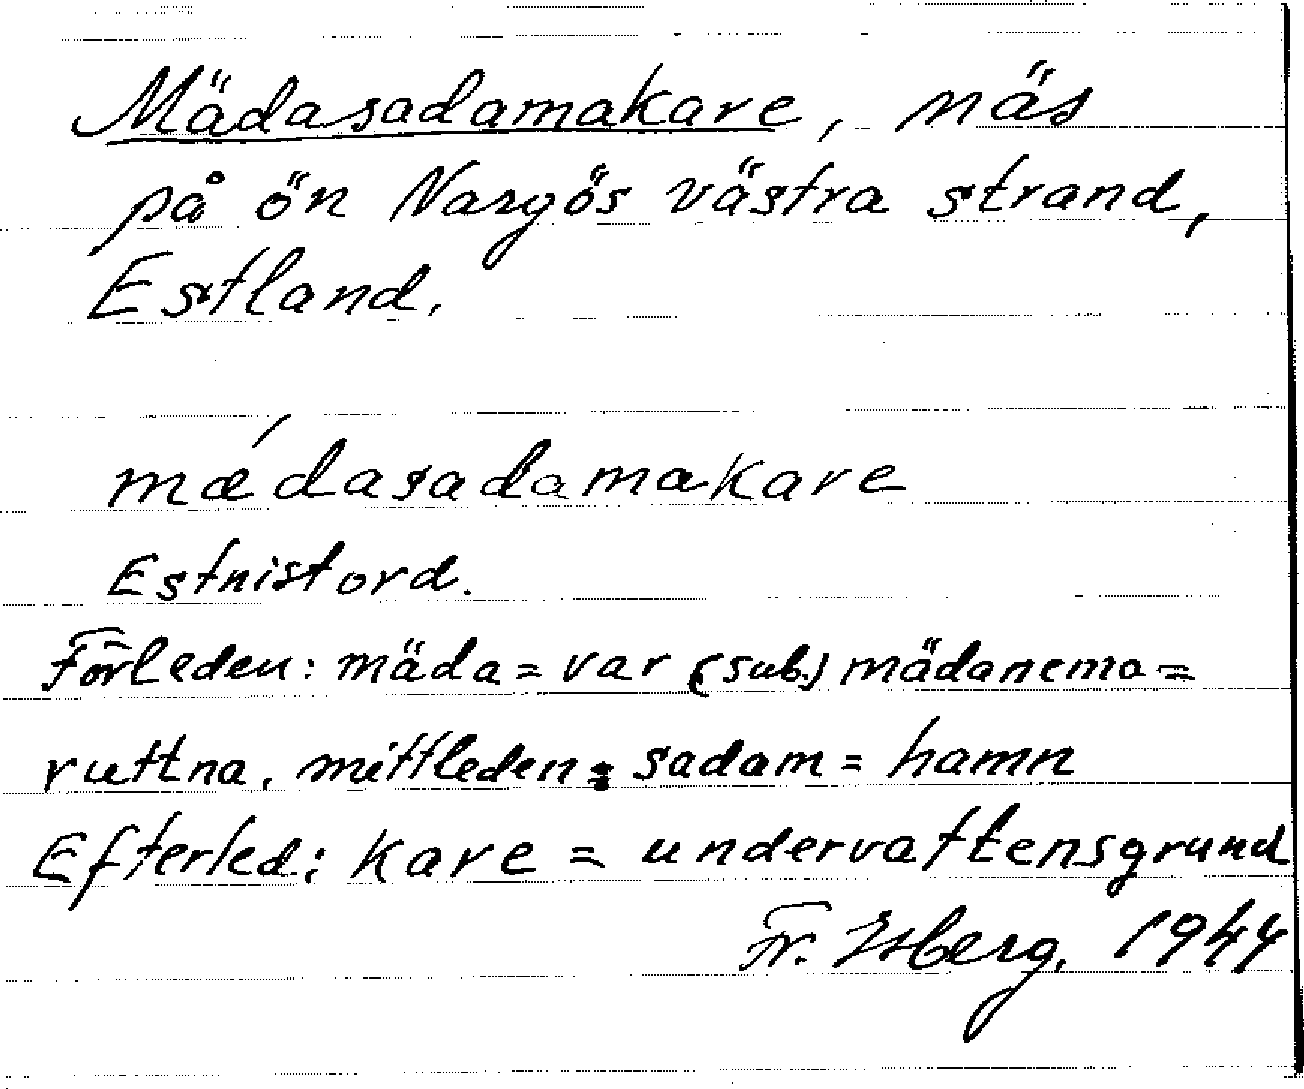 Mädasadamakare, näs
på ön Nargös västra strand,
Estland.
mǽdasadamakare
Estnist ord.
Förleden: mäda = var (sub.) mädanema =
ruttna. mittleden: sadam = hamn
Efterled: kare = undervattensgrund
Fr. Isberg. 1944